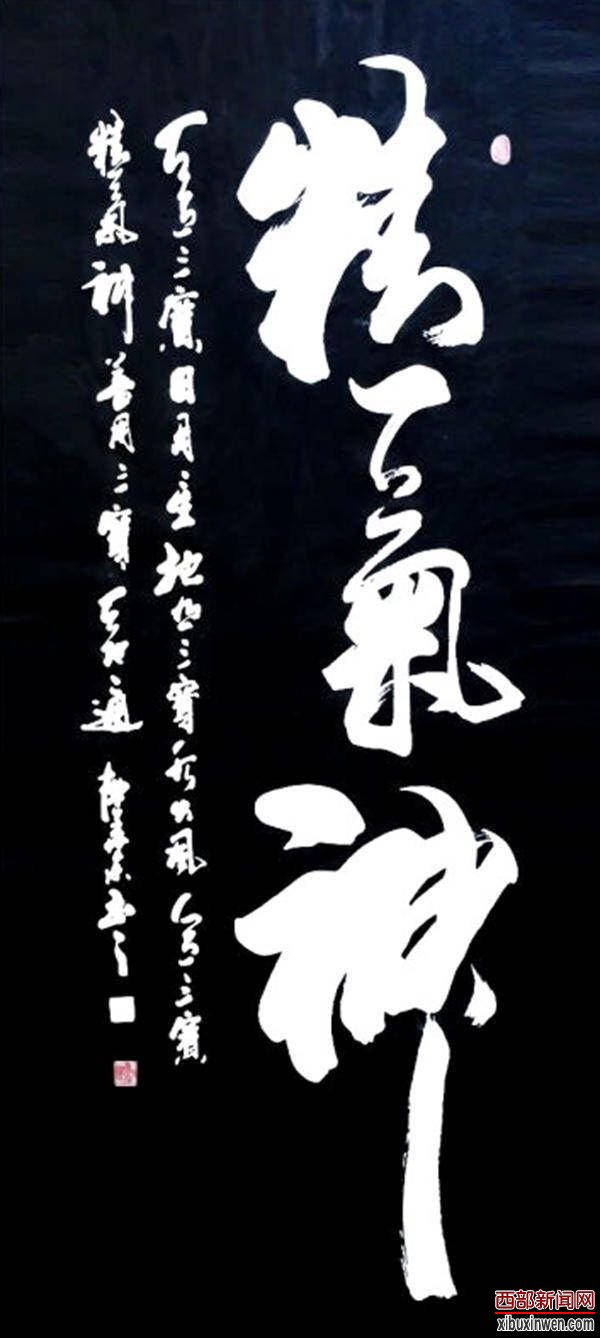 精氣神
天有三寶日月星地有三寶水火風人有三寶
精氣神善用三寶天地通
西部新闻网
xibuxinwen.com